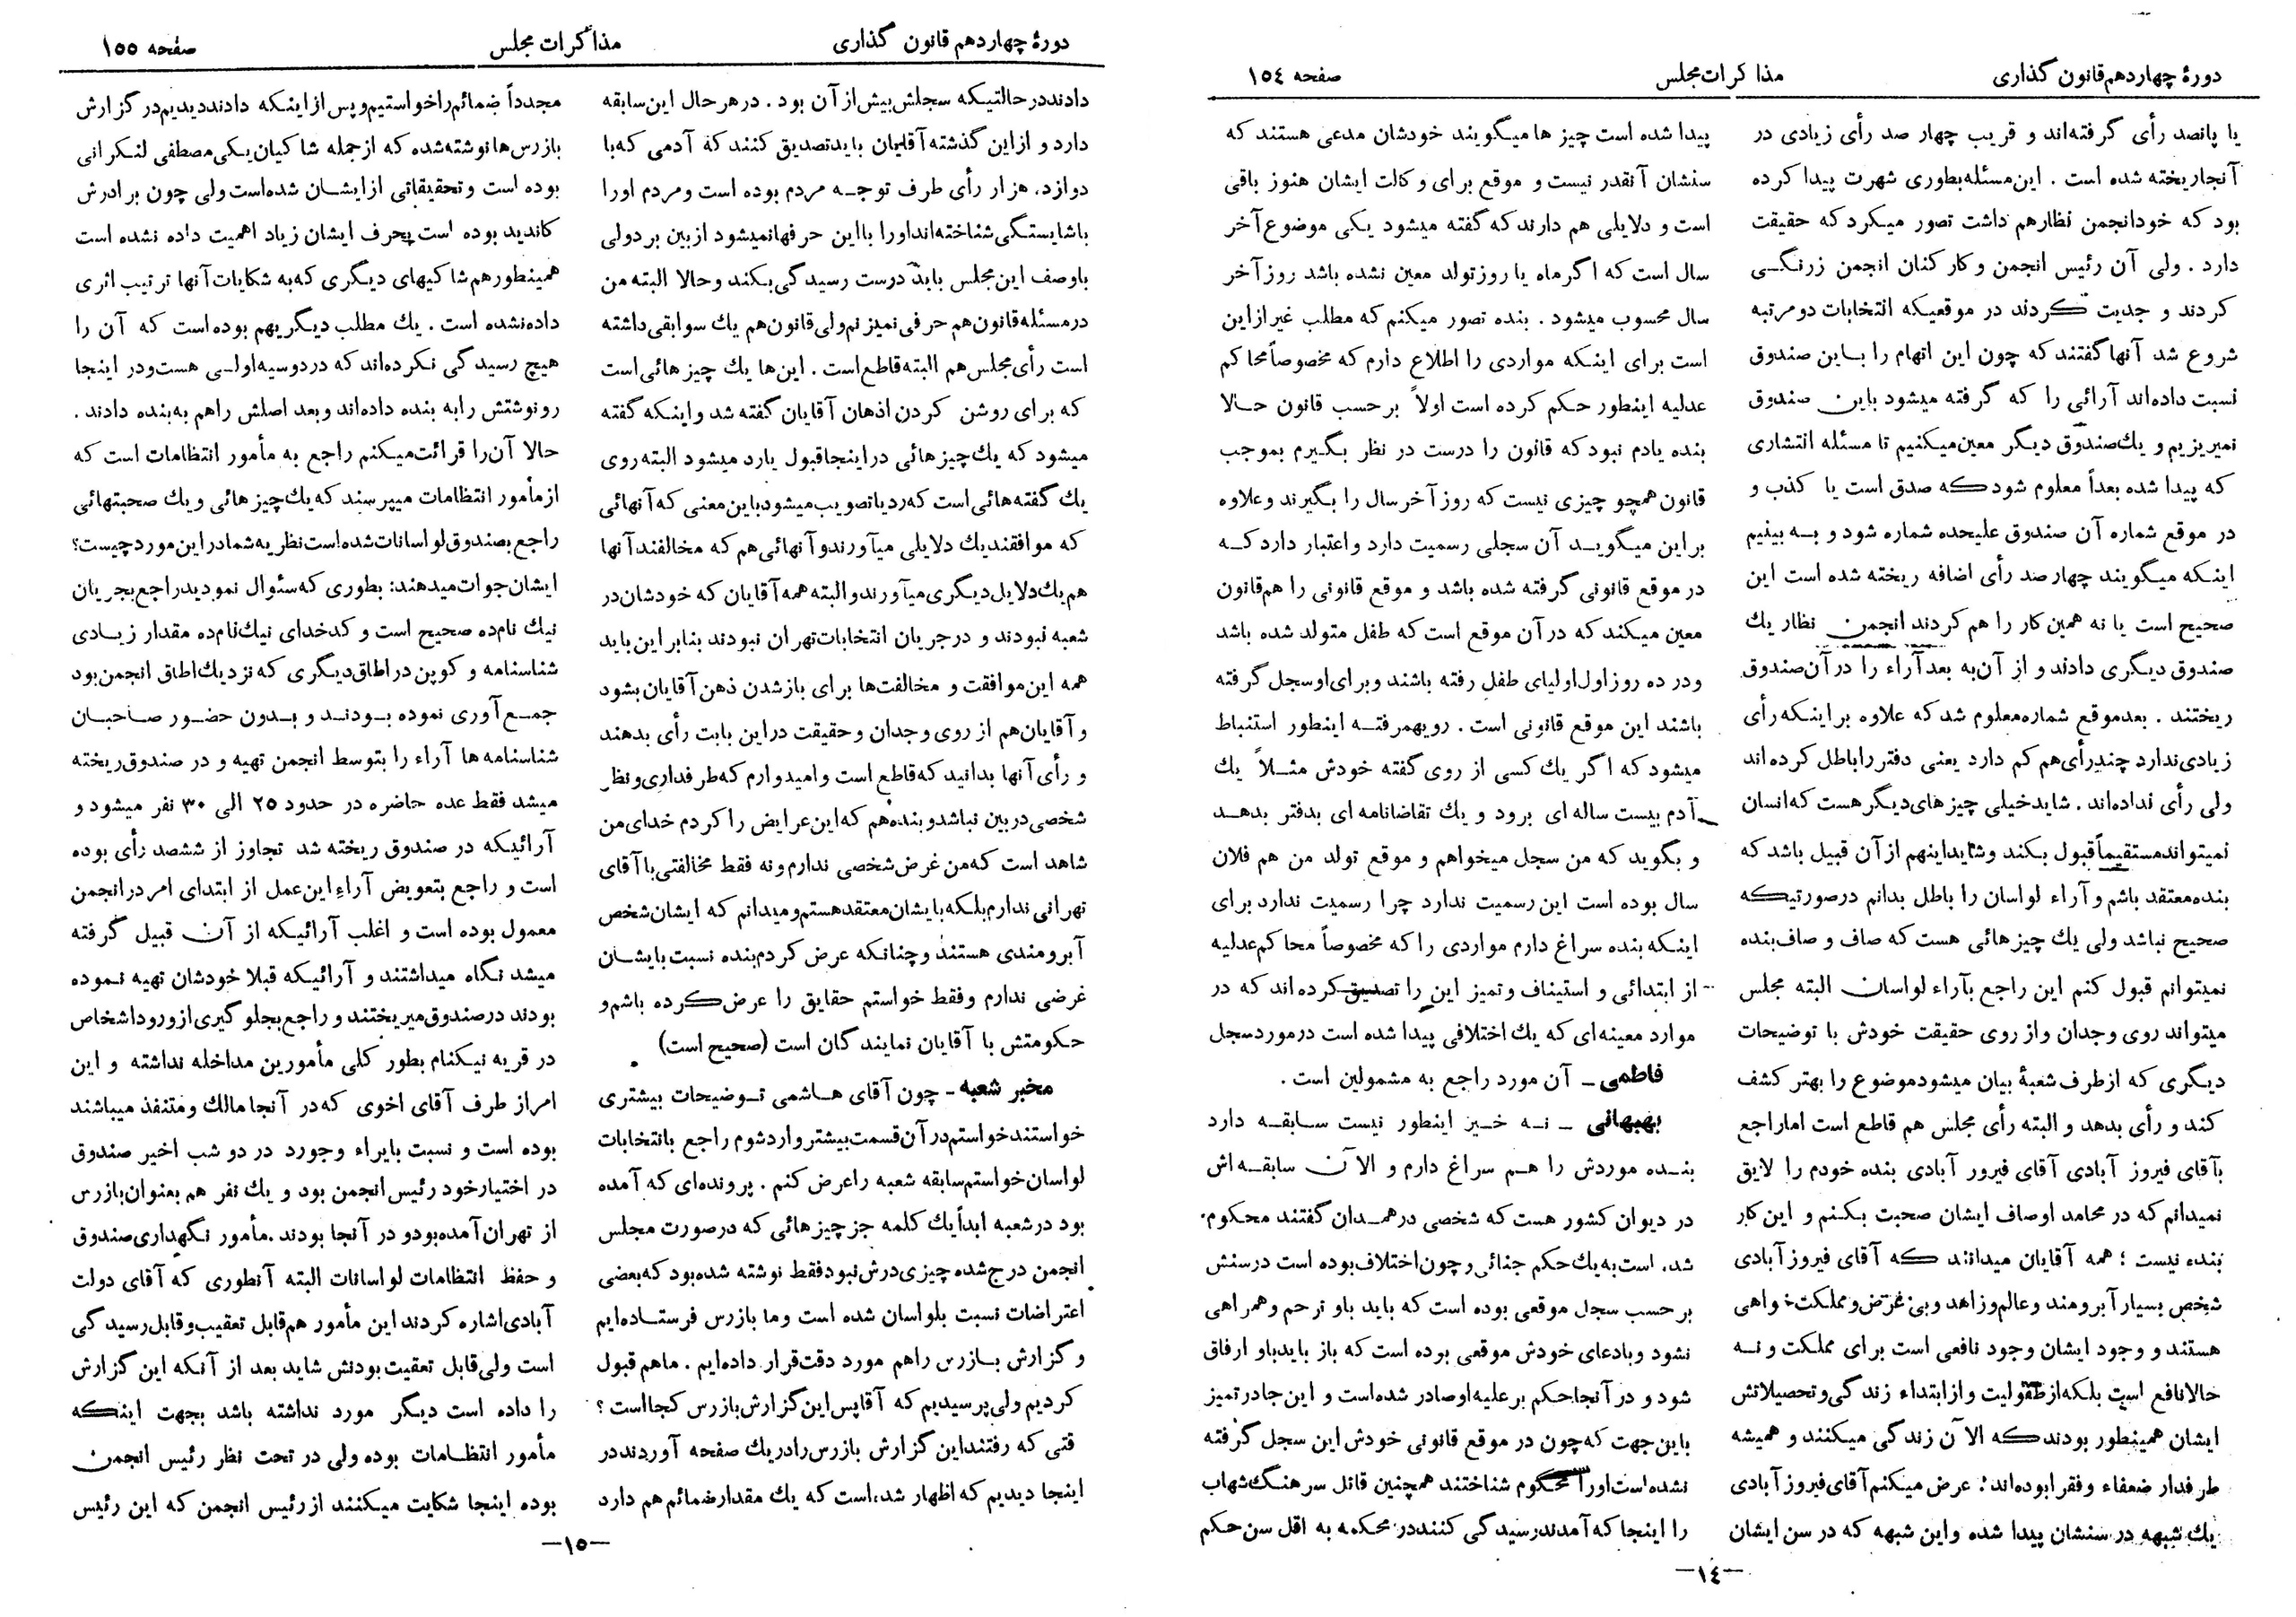 دورهٔ چهاردهم قانون گذاری
مذاکرات مجلس
صفحه ۱۵٤
یا پانصد رأی گرفته‌اند و قریب چهار صد رأی زیادی در
آنجا ریخته شده است . این مسئله بطوری شهرت پیدا کرده
بود که خود انجمن نظار هم داشت تصور میکرد که حقیقت
دارد . ولی آن رئیس انجمن و کارکنان انجمن زرنگی
کردند و جدیت کردند در موقعیکه انتخابات دو مرتبه
شروع شد آنها گفتند که چون این اتهام را باین صندوق
نسبت داده‌اند آرائی را که گرفته میشود باین صندوق
نمیریزیم و یك صندوق دیگر معین میکنیم تا مسئله انتشاری
که پیدا شده بعداً معلوم شود که صدق است یا کذب و
در موقع شماره آن صندوق علیحده شماره شود و به بینیم
اینکه میگویند چهار صد رأی اضافه ریخته شده است این
صحیح است یا نه همین کار را هم کردند انجمن نظار یك
صندوق دیگری دادند و از آن به بعد آراء را در آن صندوق
ریختند . بعد موقع شماره معلوم شد که علاوه بر اینکه رأی
زیادی ندارد چند رأی هم کم دارد یعنی دفتر را باطل کرده اند
ولی رأی نداده‌اند . شاید خیلی چیز های دیگر هست که انسان
نمیتواند مستقیماً قبول بکند و شاید اینهم از آن قبیل باشد که
بنده معتقد باشم و آراء لواسان را باطل بدانم در صورتیکه
صحیح نباشد ولی یك چیز هائی هست که صاف و صاف بنده
نمیتوانم قبول کنم این راجع بآراء لواسان البته مجلس
میتواند روی وجدان و از روی حقیقت خودش با توضیحات
دیگری که از طرف شعبهٔ بیان میشود موضوع را بهتر کشف
کند و رأی بدهد و البته رأی مجلس هم قاطع است اما راجع
بآقای فیروز آبادی آقای فیرور آبادی بنده خودم را لایق
نمیدانم که در محامد اوصاف ایشان صحبت بکنم و این کار
بنده نیست ؛ همه آقایان میدانند که آقای فیروز آبادی
شخص بسیار آبرومند و عالم و زاهد و بی غرض و مملکت خواهی
هستند و وجود ایشان وجود نافعی است برای مملکت و نه
حالا نافع است بلکه از طفولیت و از ابتداء زندگی و تحصیلاتش
ایشان همینطور بودند که الان زندگی میکنند و همیشه
طرفدار ضعفاء و فقرا بوده‌اند ؛ عرض میکنم آقای فیروز آبادی
یك شبهه در سنشان پیدا شده و این شبهه که در سن ایشان
پیدا شده است چیز ها میگویند خودشان مدعی هستند که
سنشان آنقدر نیست و موقع برای وکالت ایشان هنوز باقی
است و دلایلی هم دارند که گفته میشود یکی موضوع آخر
سال است که اگر ماه یا روز تولد معین نشده باشد روز آخر
سال محسوب میشود . بنده تصور میکنم که مطلب غیر از این
است برای اینکه مواردی را اطلاع دارم که مخصوصاً محاکم
عدلیه اینطور حکم کرده است اولاً بر حسب قانون حالا
بنده یادم نبود که قانون را درست در نظر بگیرم بموجب
قانون همچو چیزی نیست که روز آخر سال را بگیرند و علاوه
بر این میگوید آن سجلی رسمیت دارد و اعتبار دارد که
در موقع قانونی گرفته شده باشد و موقع قانونی را هم قانون
معین میکند که در آن موقع است که طفل متولد شده باشد
و در ده روز اول اولیای طفل رفته باشند و برای او سجل گرفته
باشند این موقع قانونی است . رویهمرفته اینطور استنباط
میشود که اگر یك کسی از روی گفته خودش مثلاً یك
آدم بیست ساله ای برود و یك تقاضانامه ای بدفتر بدهد
و بگوید که من سجل میخواهم و موقع تولد من هم فلان
سال بوده است این رسمیت ندارد چرا رسمیت ندارد برای
اینکه بنده سراغ دارم مواردی را که مخصوصاً محاکم عدلیه
از ابتدائی و استیناف و تمیز این را تصدیق کرده اند که در
موارد معینه ای که یك اختلافی پیدا شده است در مورد سجل
فاطمی – آن مورد راجع به مشمولین است .
بهبهانی – نه خیر اینطور نیست سابقه دارد
بنده موردش را هم سراغ دارم و الان سابقه‌اش
در دیوان کشور هست که شخصی در همدان گفتند محکوم
شده است به یك حکم جنائی و چون اختلاف بوده است در سنش
بر حسب سجل موقعی بوده است که باید باو ترحم و همراهی
نشود و بادعای خودش موقعی بوده است که باز باید باو ارفاق
شود و در آنجا حکم بر علیه او صادر شده است و این جا در تمیز
باین جهت که چون در موقع قانونی خودش این سجل گرفته
نشده است او را محکوم شناختند همچنین قاتل سرهنگ شهاب
را اینجا که آمدند رسیدگی کنند در محکمه به اقل سن حکم
–۱٤–
دورهٔ چهاردهم قانون گذاری
مذاکرات مجلس
صفحه ۱۵۵
دادند در حالتیکه سجلش بیش از آن بود . در هر حال این سابقه
دارد و از این گذشته آقایان باید تصدیق کنند که آدمی که با
دوازده هزار رأی طرف توجه مردم بوده است و مردم او را
باشایستگی شناخته‌اند او را با این حرفها نمیشود از بین برد ولی
باوصف این مجلس باید درست رسیدگی بکند و حالا البته من
در مسئله قانون هم حرفی نمیزنم ولی قانون هم یك سوابقی داشته
است رأی مجلس هم البته قاطع است . این ها یك چیز هائی است
که برای روشن کردن اذهان آقایان گفته شد و اینکه گفته
میشود که یك چیز هائی در اینجا قبول یا رد میشود البته روی
یك گفته هائی است که رد یا تصویب میشود باین معنی که آنهائی
که موافقند یك دلایلی میآورند و آنهائی هم که مخالفند آنها
هم یك دلایل دیگری میآورند و البته همه آقایان که خودشان در
شعبه نبودند و در جریان انتخابات تهران نبودند بنابر این باید
همه این موافقت و مخالفت‌ها برای باز شدن ذهن آقایان بشود
و آقایان هم از روی وجدان و حقیقت در این بابت رأی بدهند
و رأی آنها بدانید که قاطع است و امیدوارم که طرفداری و نظر
شخصی در بین نباشد و بنده هم که این عرایض را کردم خدای من
شاهد است که من غرض شخصی ندارم و نه فقط مخالفتی با آقای
تهرانی ندارم بلکه بایشان معتقد هستم و میدانم که ایشان شخص
آبرومندی هستند و چنانکه عرض کردم بنده نسبت بایشان
غرضی ندارم و فقط خواستم حقایق را عرض کرده باشم و
حکومتش با آقایان نمایندگان است (صحیح است)
مخبر شعبه – چون آقای هاشمی توضیحات بیشتری
خواستند خواستم در آن قسمت بیشتر وارد شوم راجع بانتخابات
لواسان خواستم سابقه شعبه را عرض کنم . پرونده‌ای که آمده
بود در شعبه ابداً یك کلمه جز چیز هائی که در صورت مجلس
انجمن درج شده چیزی درش نبود فقط نوشته شده بود که بعضی
اعتراضات نسبت بلواسان شده است و ما بازرس فرستاده‌ایم
و گزارش بازرس را هم مورد دقت قرار داده‌ایم . ما هم قبول
کردیم ولی پرسیدیم که آقا پس این گزارش بازرس کجا است ؟
قتی که رفتند این گزارش بازرس را در یك صفحه آوردند در
اینجا دیدیم که اظهار شده است که یك مقدار ضمائم هم دارد
مجدداً ضمائم را خواستیم و پس از اینکه دادند دیدیم در گزارش
بازرس‌ها نوشته شده که از جمله شاکیان یکی مصطفی لنکرانی
بوده است و تحقیقاتی از ایشان شده است ولی چون برادرش
کاندید بوده است بحرف ایشان زیاد اهمیت داده نشده است
همینطور هم شاکیهای دیگری که به شکایات آنها ترتیب اثری
داده نشده است . یك مطلب دیگریهم بوده است که آن را
هیچ رسیدگی نکرده‌اند که در دوسیه اولی هست و در اینجا
رونوشتش را به بنده داده‌اند و بعد اصلش را هم به بنده دادند .
حالا آن را قرائت میکنم راجع به مأمور انتظامات است که
از مأمور انتظامات میپرسند که یك چیز هائی و یك صحبتهائی
راجع بصندوق لواسانات شده است نظریه شما در این مورد چیست؟
ایشان جوات میدهند: بطوری که سئوال نمودید راجع بجریان
نیك نامده صحیح است و کدخدای نیك نامده مقدار زیادی
شناسنامه و کوپن در اطاق دیگری که نزدیك اطاق انجمن بود
جمع آوری نموده بودند و بدون حضور صاحبان
شناسنامه ها آراء را بتوسط انجمن تهیه و در صندوق ریخته
میشد فقط عده حاضره در حدود ۲۵ الی ۳۰ نفر میشود و
آرائیکه در صندوق ریخته شد تجاوز از ششصد رأی بوده
است و راجع بتعویض آراء این عمل از ابتدای امر در انجمن
معمول بوده است و اغلب آرائیکه از آن قبیل گرفته
میشد نگاه میداشتند و آرائیکه قبلا خودشان تهیه نموده
بودند در صندوق میریختند و راجع بجلوگیری از ورود اشخاص
در قریه نیکنام بطور کلی مأمورین مداخله نداشته و این
امر از طرف آقای اخوی که در آنجا مالك و متنفذ میباشند
بوده است و نسبت بایراء وجورد در دو شب اخیر صندوق
در اختیار خود رئیس انجمن بود و یك نفر هم بعنوان بازرس
از تهران آمده بود و در آنجا بودند . مأمور نگهداری صندوق
و حفظ انتظامات لواسانات البته آنطوری که آقای دولت
آبادی اشاره کردند این مأمور هم قابل تعقیب و قابل رسیدگی
است ولی قابل تعقیت بودنش شاید بعد از آنکه این گزارش
را داده است دیگر مورد نداشته باشد بجهت اینکه
مأمور انتظامات بوده ولی در تحت نظر رئیس انجمن
بوده اینجا شکایت میکنند از رئیس انجمن که این رئیس
–۱۵–